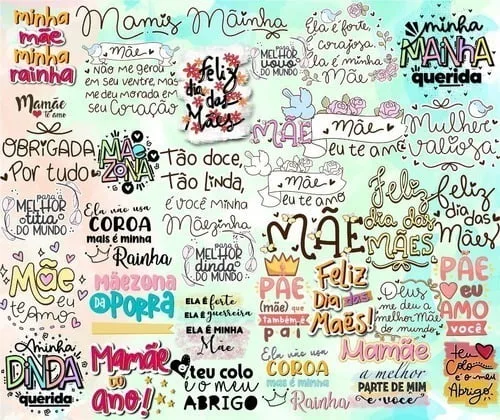 minha
mãe
minha
rainha
Mamis
Mãinha
Mãe
Não me gerou
em seu ventre, mas
me deu morada em
seu Coração
Feliz
dia das
Mães
para a
MELHOR
vovó
DO MUNDO
Ela é forte
Corajosa,
Ela é minha
Mãe
minha
MAINHA
querida
Mamãe
te amo
OBRIGADA
Por tudo
MÃE
ZONA
Tão doce,
Tão Linda,
É você minha
Mãezinha
MÃE
Mãe
eu te amo
Mulher
valiosa
Mãe
eu te amo
para a
MELHOR
titia
DO MUNDO
Ela não usa
COROA
mais é minha
Rainha
para a
MELHOR
dinda
DO MUNDO
MÃE
Feliz
dia das
MÃES
feliz
dia das
Mães
Mãe
eu
te Amo
MÃEZONA
DA
PORRA
ELA É forte
ELA É guerreira
ELA É MINHA
Mãe
PÃE
(mãe) que
também é
pai
Feliz
Dia das
Mães!
Deus,
me deu a
melhor Mãe
do mundo.
PÃE
eu
AMO
VOCÊ
minha
DINDA
querida
Mamãe
eu
amo!
teu colo
é o meu
ABRIGO
Ela não usa
COROA
mas é minha
Rainha
Mamãe
a melhor
PARTE DE MIM
é você
teu
Colo
é o meu
Abrigo